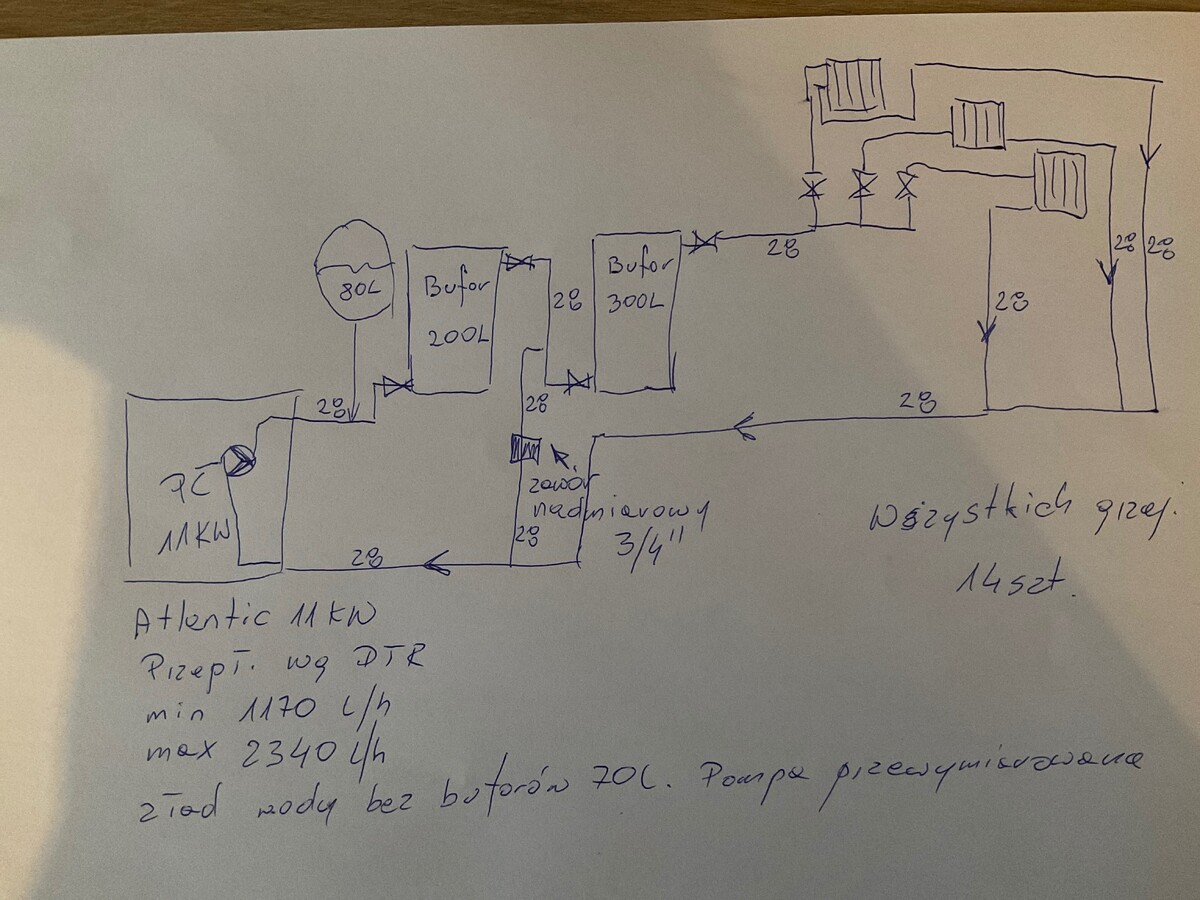 80L
Bufor
200L
Bufor
300L
28
28
28
28
28
28
28
28
28
28
zawór
nadmiarowy
3/4"
PC
11KW
Wszystkich grzej.
14szt.
Atlantic 11KW
Przepł. wg DTR
min 1170 l/h
max 2340 l/h
zład wody bez buforów 70L. Pompa przewymiarowana